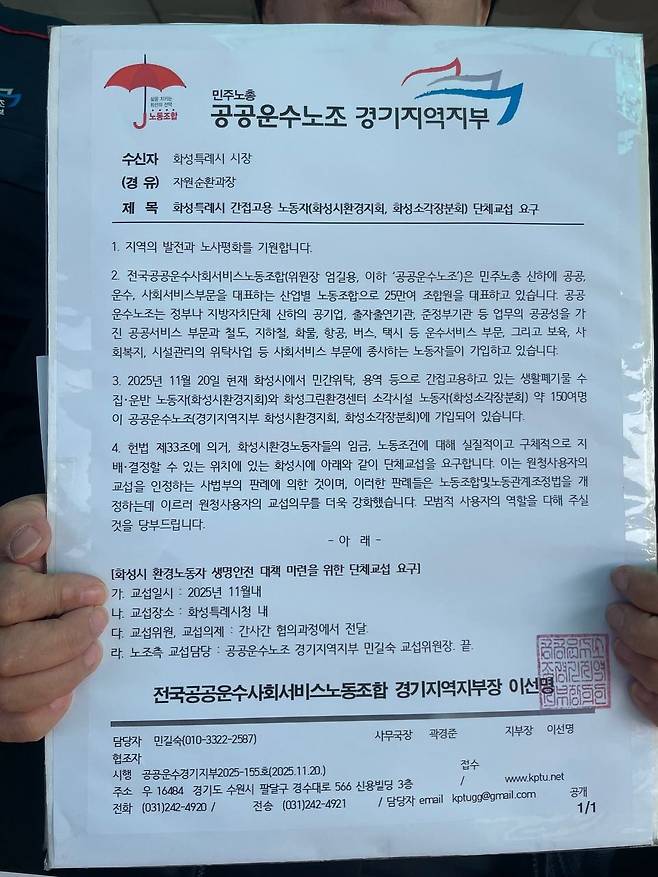 삶을 지키는
최선의 선택
노동조합
민주노총
공공운수노조 경기지역지부
수신자 화성특례시 시장
(경 유) 자원순환과장
제 목 화성특례시 간접고용 노동자(화성시환경지회, 화성소각장분회) 단체교섭 요구
1. 지역의 발전과 노사평화를 기원합니다.
2. 전국공공운수사회서비스노동조합(위원장 엄길용, 이하 ‘공공운수노조’)은 민주노총 산하에 공공,
운수, 사회서비스부문을 대표하는 산업별 노동조합으로 25만여 조합원을 대표하고 있습니다. 공공
운수노조는 정부나 지방자치단체 산하의 공기업, 출자출연기관, 준정부기관 등 업무의 공공성을 가
진 공공서비스 부문과 철도, 지하철, 화물, 항공, 버스, 택시 등 운수서비스 부문, 그리고 보육, 사
회복지, 시설관리의 위탁사업 등 사회서비스 부문에 종사하는 노동자들이 가입하고 있습니다.
3. 2025년 11월 20일 현재 화성시에서 민간위탁, 용역 등으로 간접고용하고 있는 생활폐기물 수
집·운반 노동자(화성시환경지회)와 화성그린환경센터 소각시설 노동자(화성소각장분회) 약 150여명
이 공공운수노조(경기지역지부 화성시환경지회, 화성소각장분회)에 가입되어 있습니다.
4. 헌법 제33조에 의거, 화성시환경노동자들의 임금, 노동조건에 대해 실질적이고 구체적으로 지
배·결정할 수 있는 위치에 있는 화성시에 아래와 같이 단체교섭을 요구합니다. 이는 원청사용자의
교섭을 인정하는 사법부의 판례에 의한 것이며, 이러한 판례들은 노동조합및노동관계조정법을 개
정하는데 이르러 원청사용자의 교섭의무를 더욱 강화했습니다. 모범적 사용자의 역할을 다해 주실
것을 당부드립니다.
- 아 래 -
[화성시 환경노동자 생명안전 대책 마련을 위한 단체교섭 요구]
가. 교섭일시 : 2025년 11월내
나. 교섭장소 : 화성특례시청 내
다. 교섭위원, 교섭의제 : 간사간 협의과정에서 전달.
라. 노조측 교섭담당 : 공공운수노조 경기지역지부 민길숙 교섭위원장. 끝.
전국공공운수사회서비스노동조합 경기지역지부장 이선명
담당자 민길숙(010-3322-2587) 사무국장 곽경준 지부장 이선명
협조자
시행 공공운수경기지부2025-155호(2025.11.20.) 접수
주소 우 16484 경기도 수원시 팔달구 경수대로 566 신용빌딩 3층 / www.kptu.net
전화 (031)242-4920 / 전송 (031)242-4921 / 담당자 email kptugg@gmail.com 공개
1/1